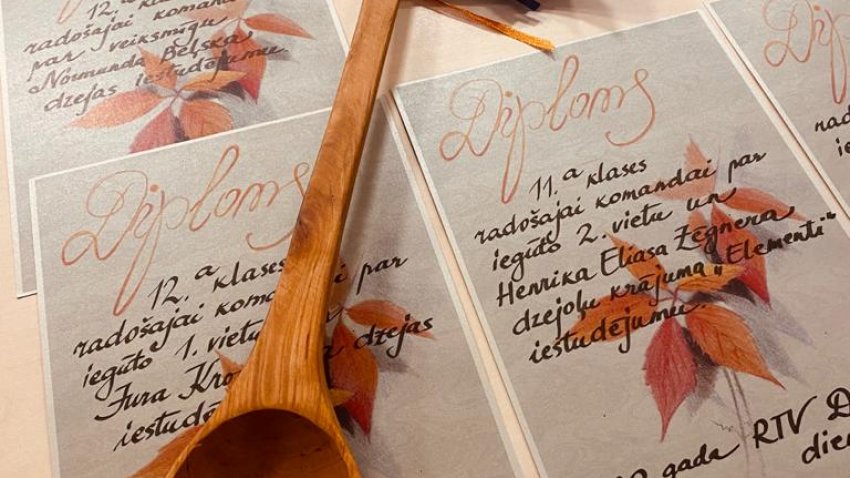 12. a klases
radošajai komandai
par veiksmīgu
Normunda Beļska
dzejas iestudējumu
Diploms
12. a klases
radošajai par
iegūto 1. vietu
Jura dzejas
Diploms
11. a klases
radošajai komandai par
iegūto 2. vietu un
Henrika Eliasa Zēgnera
dzejoļu krājuma „Elementi”
iestudējumu.
gada RTV